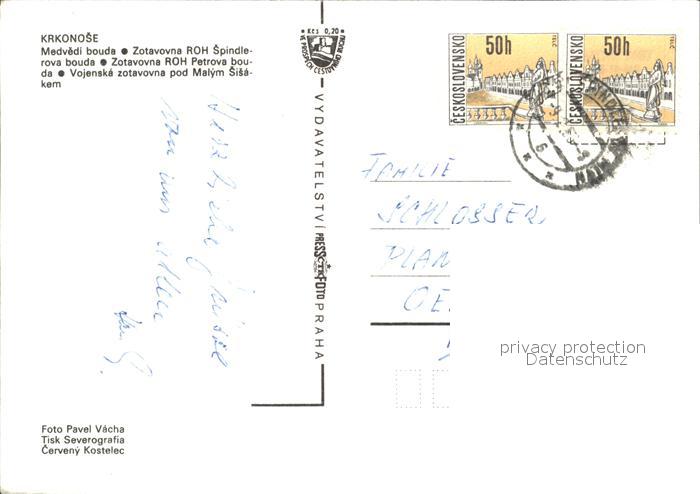 KRKONOŠE
Medvědí bouda ● Zotavovna ROH Špindle-
rova bouda ● Zotavovna ROH Petrova bou-
da ● Vojenská zotavovna pod Malým Šišá-
kem
Kčs 0,20
VE PROSPĚCH CESTOVNÍHO RUCHU
VYDAVATELSTVÍ PRESSFOTO PRAHA
ČESKOSLOVENSKO
50h
TELČ
ČESKOSLOVENSKO
50h
TELČ
Herzliche Grüsse
von uns allen
FAMILIE
SCHLOSSER
PLAN
OE
privacy protection
Datenschutz
Foto Pavel Vácha
Tisk Severografia
Červený Kostelec